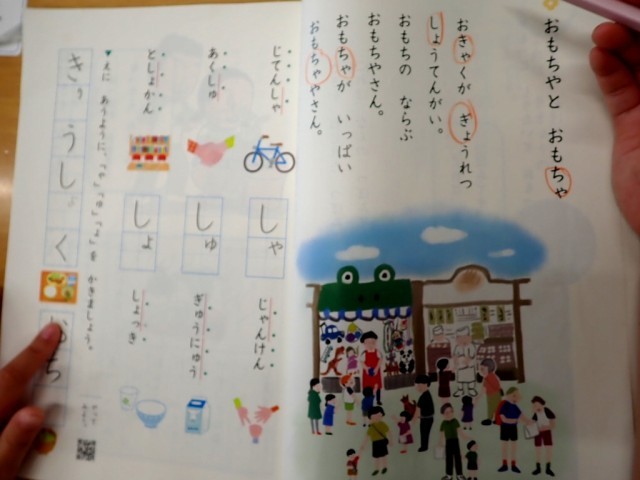 おもちやと おもちゃ
おきゃくが ぎょうれつ
しょうてんがい。
おもちの ならぶ
おもちやさん。
おもちゃが いっぱい
おもちゃやさん。
じてんしゃ
あくしゅ
としょかん
しゃ
しゅ
しょ
じゃんけん
ぎゅうにゅう
しょっき
えに あうように、「ゃ」「ゅ」「ょ」を かきましょう。
きゅうしょく